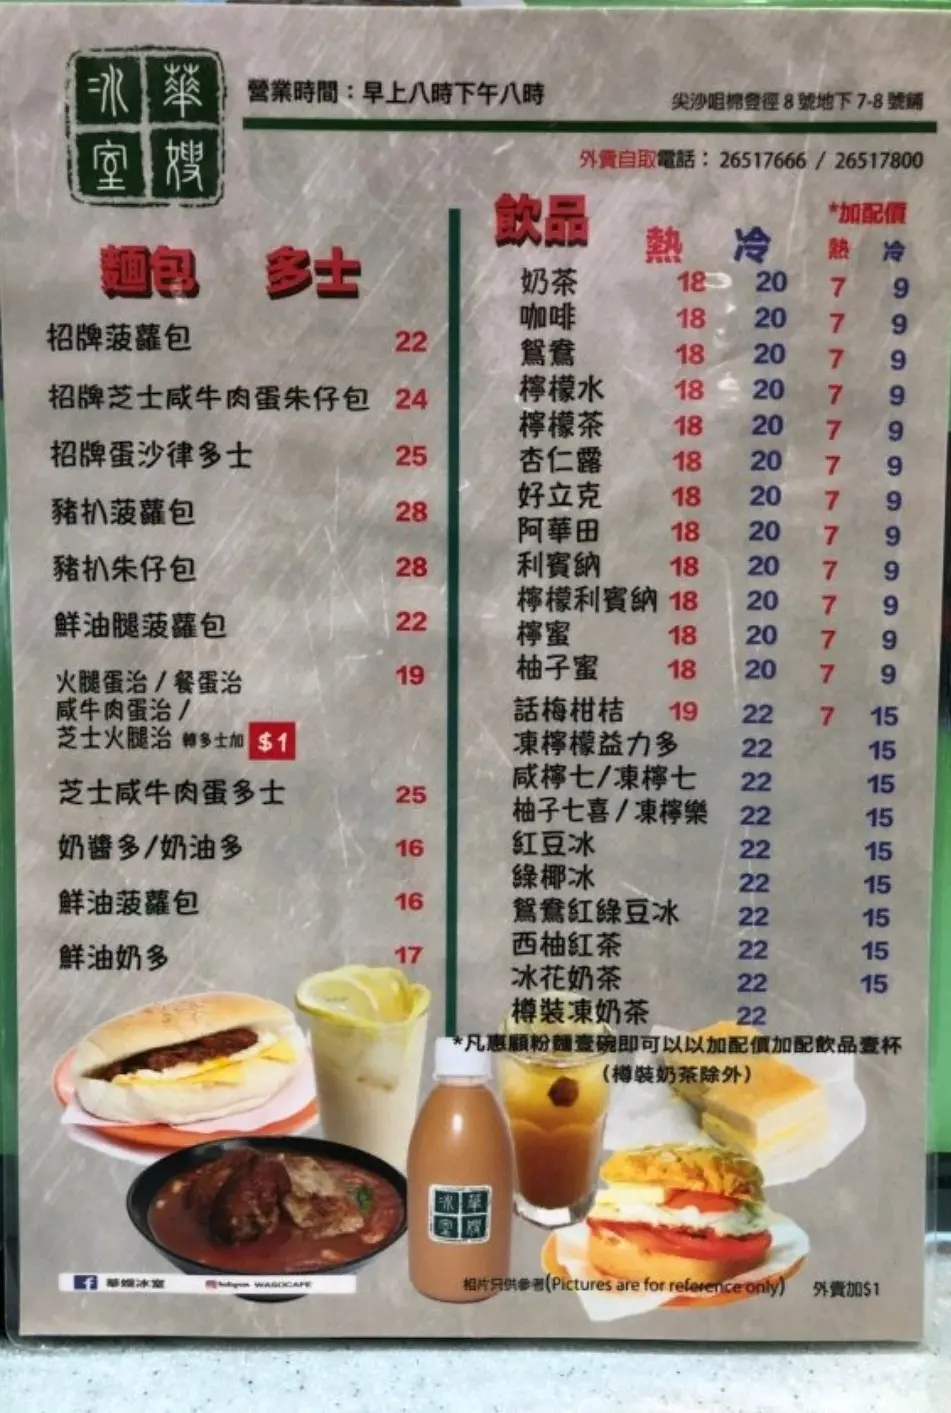 華嫂冰室
營業時間：早上八時下午八時
尖沙咀棉登徑 8 號地下 7-8 號鋪
外賣自取電話： 26517666 / 26517800
麵包 多士
招牌菠蘿包 22
招牌芝士咸牛肉蛋朱仔包 24
招牌蛋沙律多士 25
豬扒菠蘿包 28
豬扒朱仔包 28
鮮油腿菠蘿包 22
火腿蛋治 / 餐蛋治 19
咸牛肉蛋治 /
芝士火腿治 轉多士加 $1
芝士咸牛肉蛋多士 25
奶醬多/奶油多 16
鮮油菠蘿包 16
鮮油奶多 17
飲品 熱 冷 *加配價
熱 冷
奶茶 18 20 7 9
咖啡 18 20 7 9
鴛鴦 18 20 7 9
檸檬水 18 20 7 9
檸檬茶 18 20 7 9
杏仁露 18 20 7 9
好立克 18 20 7 9
阿華田 18 20 7 9
利賓納 18 20 7 9
檸檬利賓納 18 20 7 9
檸蜜 18 20 7 9
柚子蜜 18 20 7 9
話梅柑桔 19 22 7 15
凍檸檬益力多 22 15
咸檸七/凍檸七 22 15
柚子七喜/凍檸樂 22 15
紅豆冰 22 15
綠椰冰 22 15
鴛鴦紅綠豆冰 22 15
西柚紅茶 22 15
冰花奶茶 22 15
樽裝凍奶茶 22
*凡惠顧粉麵壹碗即可以以加配價加配飲品壹杯
（樽裝奶茶除外）
華嫂冰室
華嫂冰室 Instagram WASOCAFE
相片只供參考(Pictures are for reference only) 外賣加$1